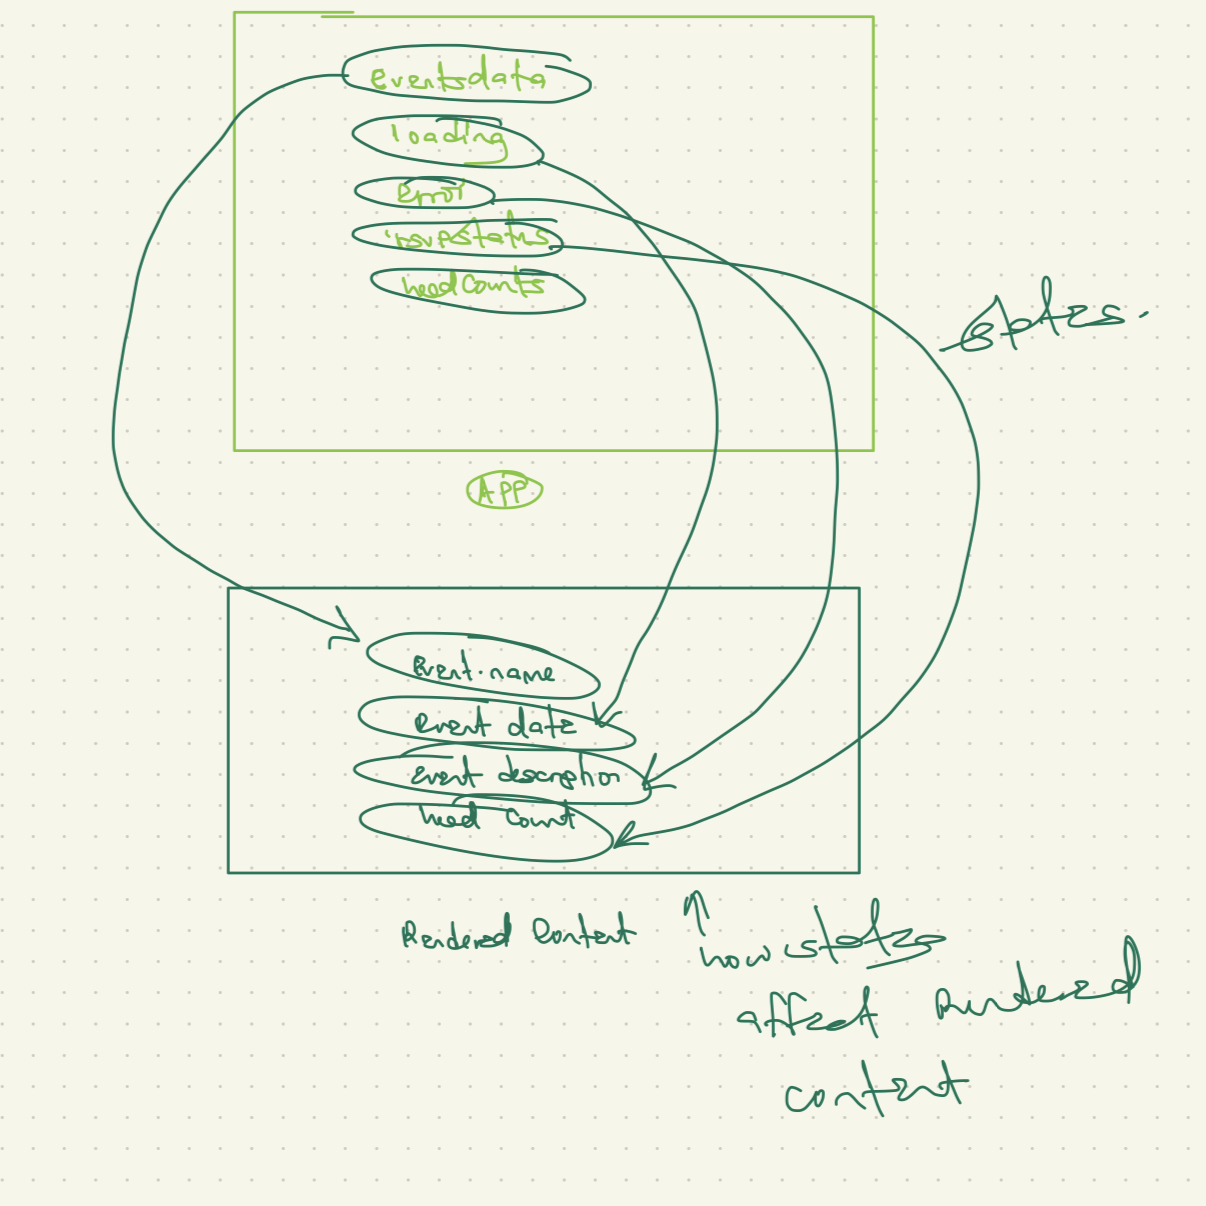 eventsdata
loading
Error
rsvpstatus
headcounts
states.
APP
Event.name
event date
event description
head count
Rendered Content
how states
affect rendered
content